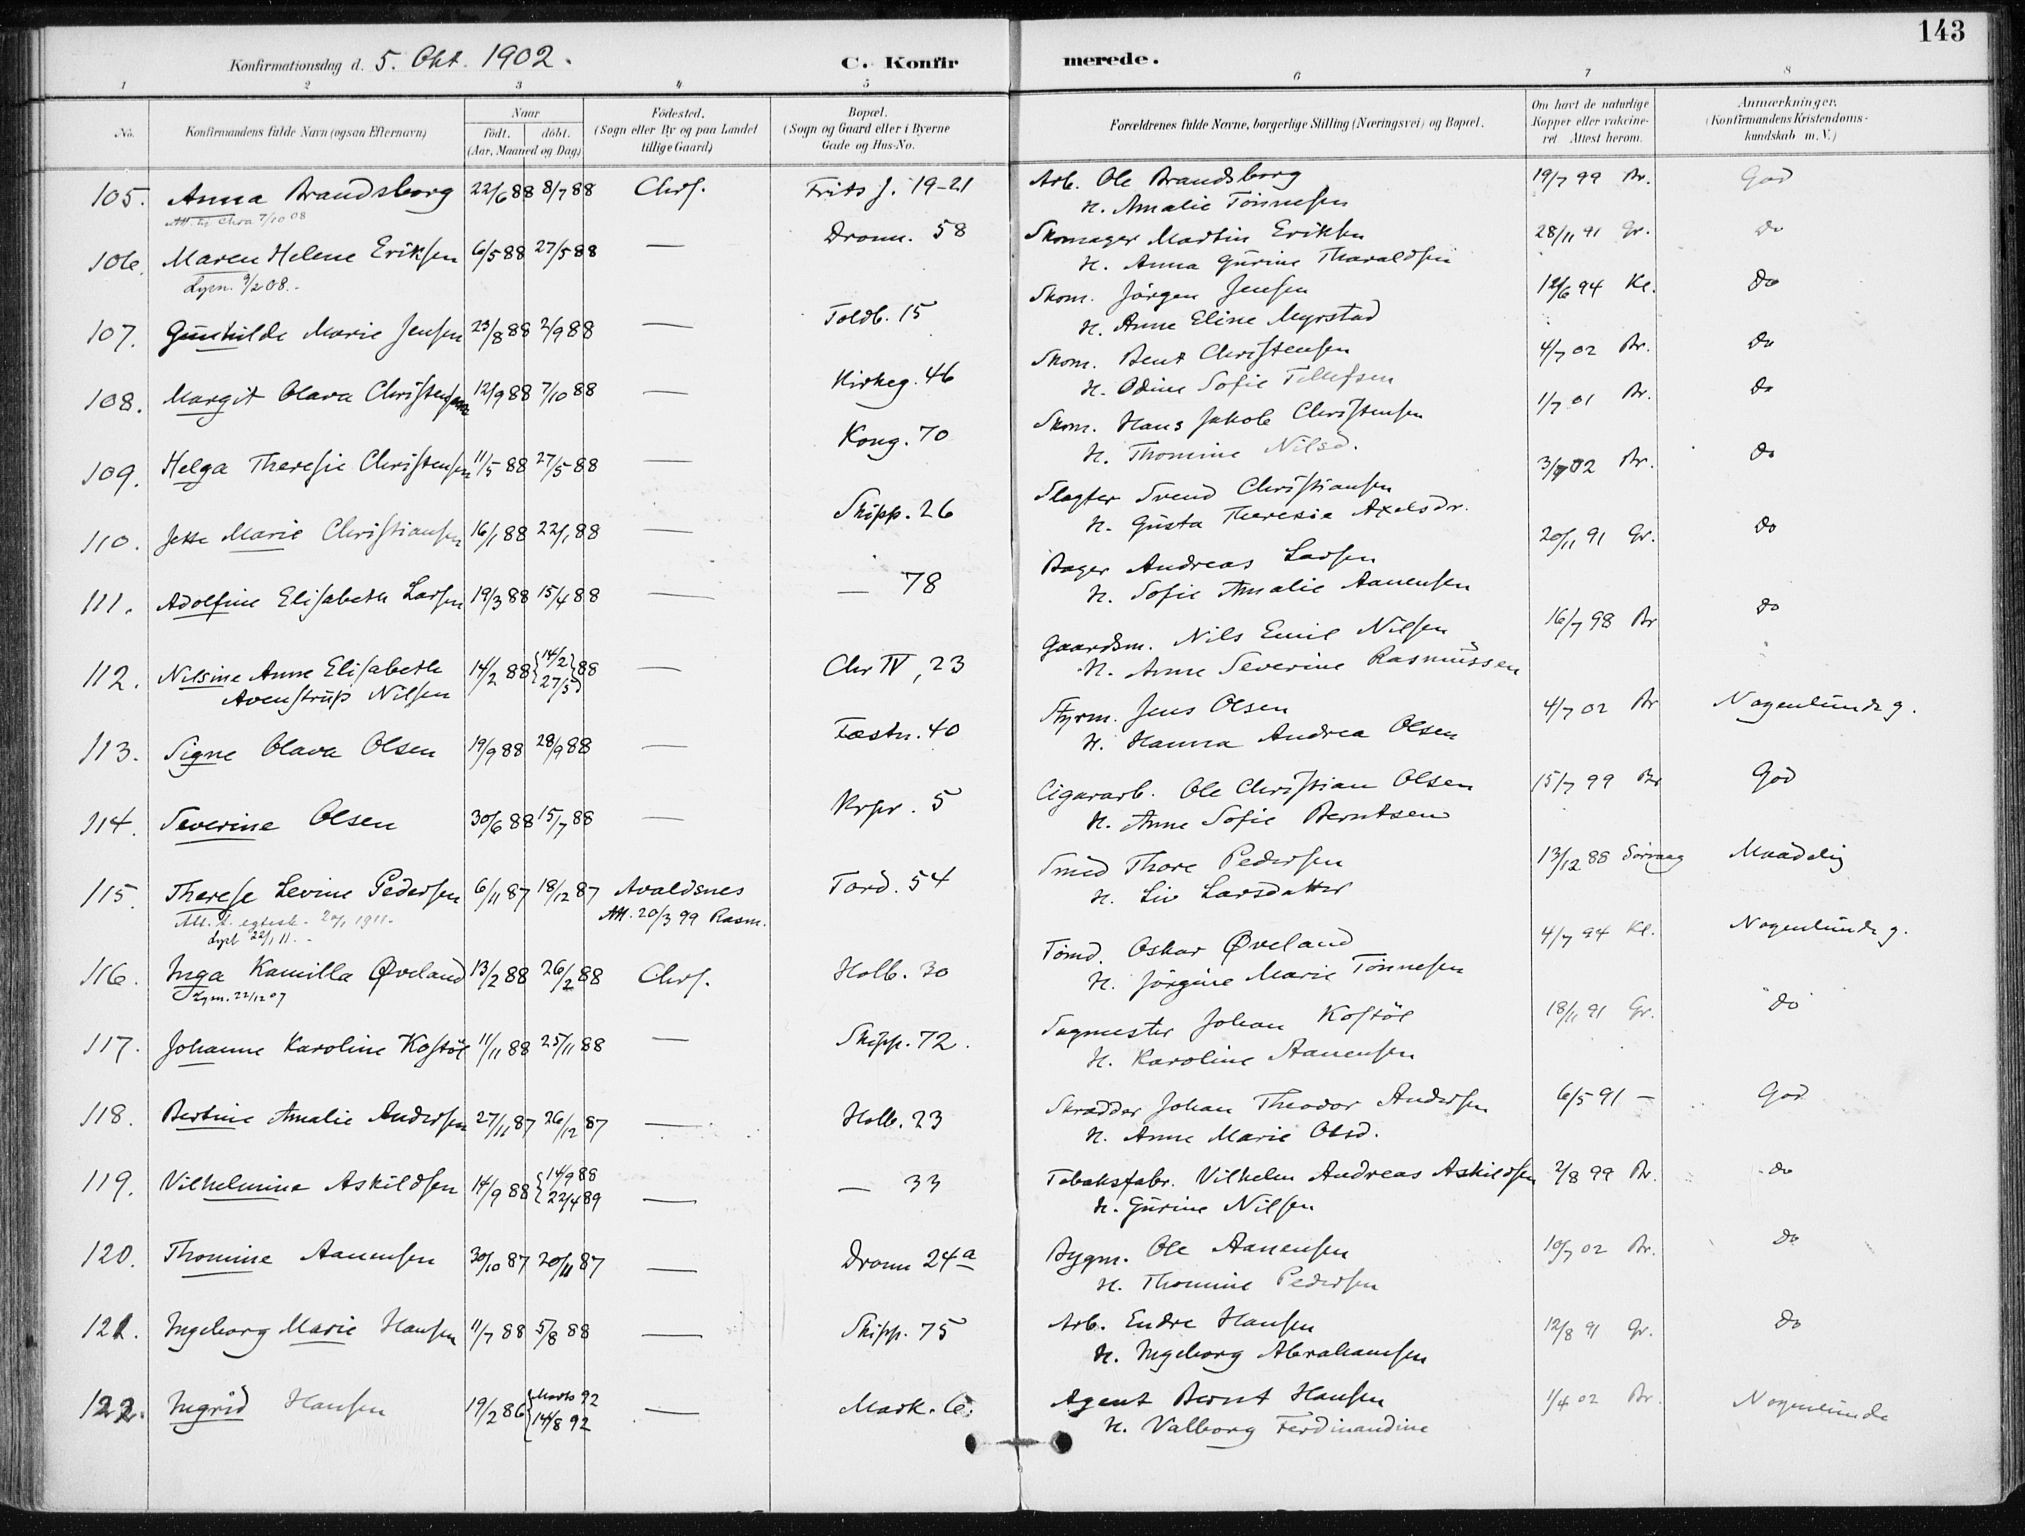 143
Konfirmationsdag d. 5. Okt. 1902.
C. Konfirmerede.
1 2 3 4 5 6 7 8
No. Konfirmandens fulde Navn (ogsaa Efternavn) Naar født. døbt. (Aar, Maaned og Dag) Fødested. (Sogn eller By og paa Landet tillige Gaard) Bopæl. (Sogn og Gaard eller i Byerne Gade og Hus-No. Forældrenes fulde Navne, borgerlige Stilling (Næringsvei) og Bopæl. Om havt de naturlige Kopper eller vakcineret Attest herom. Anmærkninger. (Konfirmandens Kristendomskundskab m. V.)
105. Anna Brandsborg 22/6 88 8/7 88 Chrs. Frits J. 19-21 Arb. Ole Brandsborg 19/7 99 Br. God
Chra 7/10 08 H. Amalie Tönnesen
106. Maren Helene Eriksen 6/5 88 27/5 88 — Dronn. 58 Skomager Martin Eriksen 28/11 91 Gr. Do
Lysn. 9/2 08. H. Anna Gurine Tharaldsen
107. Gunhilde Marie Jensen 23/8 88 2/9 88 — Toldb. 15 Skom. Jörgen Jensen 12/6 94 Kl. Do
H. Anne Eline Myrstad
108. Margit Olava Christensen 12/9 88 7/10 88 — Kirkeg. 46 Skom. Bent Christensen 4/7 02 Br. Do
H. Odine Sofie Tellefsen
109. Helga Theresie Christensen 11/5 88 27/5 88 — Kong. 70 Skom. Hans Jakob Christensen 1/7 01 Br. Do
H. Thomine Nilsd.
110. Jette Marie Christiansen 16/1 88 22/1 88 — Skipp. 26 Slagter Svend Christiansen 3/7 02 Br. Do
H. Gusta Theresie Axelsdr.
111. Adolfine Elisabeth Larsen 19/3 88 15/4 88 — — 78 Bager Andreas Larsen 20/11 91 Gr. Do
H. Sofie Amalie Aanensen
112. Nilsine Anne Elisabeth 14/2 88 {14/2 27/5} 88 — Chr IV, 23 Gaardsm. Nils Emil Nilsen 16/7 98 Br Do
Avenstrup Nilsen H. Anne Severine Rasmussen
113. Signe Olava Olsen 19/9 88 28/9 88 — Fæstn. 40 Styrm. Jens Olsen 4/7 02 Br Nogenlunde g.
H. Hanna Andrea Olsen
114. Severine Olsen 30/6 88 15/7 88 — Krpr. 5 Cigararb. Ole Christian Olsen 15/7 99 Br God
H. Anne Sofie Berntsen
115. Therese Levine Pedersen 6/11 87 18/12 87 Avaldsnes Tord. 54 Smed Thore Pedersen 13/12 88 Maadelig
Att. t. egtesk. 20/1 1911. Att. 20/3 99 Rasm. H. Liv Larsdatter
Lyst 22/1 11.
116. Inga Kamilla Øveland 13/2 88 26/2 88 Chrs. Holb. 30 Tömd. Oskar Øveland 4/7 94 Kl. Nogenlunde g.
Lysn. 22/12 07 H. Jörgine Marie Tönnesen
117. Johanne Karoline Kostöl 11/11 88 25/11 88 — Skipp. 72. Sagmester Johan Kostöl 18/11 91 Gr. Do
H. Karoline Aanensen
118. Bertine Amalie Andersen 27/11 87 26/12 87 — Holb. 23 Skrædder Johan Theodor Andersen 6/5 91 — God
H. Anne Marie Olsd.
119. Vilhelmine Askildsen 14/9 88 {14/9 88 — — 33 Tobaksfabr. Vilhelm Andreas Askildsen 2/8 99 Br. Do
{22/4 89 H. Gurine Nilsen
120. Thomine Aanensen 30/10 87 20/11 87 — Dronn 24a Bygm. Ole Aanensen 10/7 02 Br. Do
H. Thomine Pedersen
121. Ingeborg Marie Hansen 11/7 88 5/8 88 — Skipp. 75 Arb. Endre Hansen 12/8 91 Gr. Do
H. Ingeborg Abrahamsen
122. Ingrid Hansen 19/2 86 {Marts 92 — Mark. 6. Agent Bernt Hansen 1/4 02 Br. Nogenlunde
{14/8 92 H. Valborg Ferdinandine